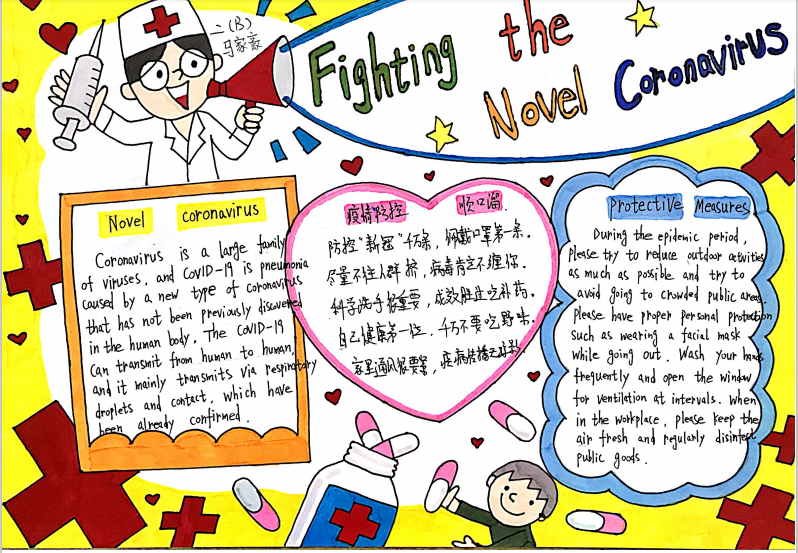 二(B)
马家豪
Fighting the
Novel Coronavirus
Novel coronavirus
Coronavirus is a large family
of viruses, and COVID-19 is pneumonia
caused by a new type of coronavirus
that has not been previously discovered
in the human body. The COVID-19
can transmit from human to human,
and it mainly transmits via respiratory
droplets and contact, which have
been already confirmed.
疫情防控 顺口溜
防控"新冠"千万条，佩戴口罩第一条。
尽量不往人群挤，病毒肯定不缠你。
科学洗手很重要，成效胜过吃补药。
自己健康第一位，千万不要吃野味。
家里通风很要紧，疫病传播
Protective Measures
During the epidemic period,
please try to reduce outdoor activities
as much as possible and try to
avoid going to crowded public areas.
please have proper personal protection
such as wearing a facial mask
while going out. Wash your hands
frequently and open the window
for ventilation at intervals. When
in the workplace, please keep the
air fresh and regularly disinfect
public goods.